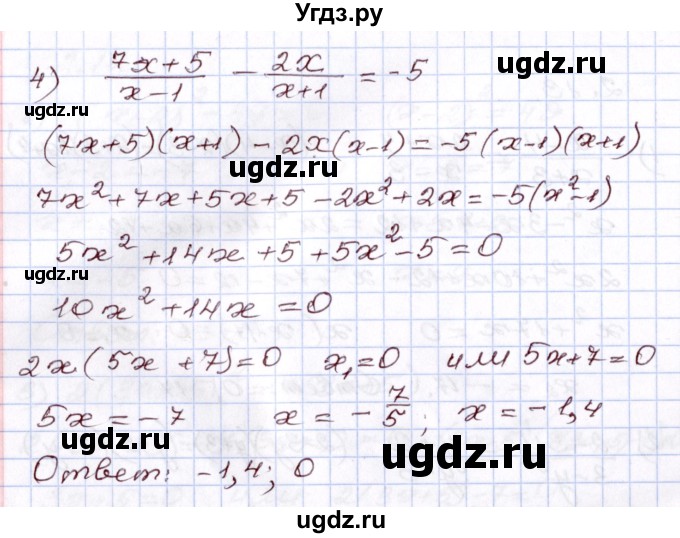 Угдз.ру
4) (7x+5)/(x-1) - 2x/(x+1) = -5
ugdz.ru
ugdz.ru
(7x+5)(x+1) - 2x(x-1) = -5(x-1)(x+1)
ugdz.ru
7x²+7x+5x+5-2x²+2x=-5(x²-1)
5x²+14x+5+5x²-5=0
ugdz.ru
ugdz.ru
10x²+14x=0
2x(5x+7)=0 x₁=0 или 5x+7=0
ugdz.ru
ugdz.ru
5x=-7 x=-7/5; x=-1,4
ugdz.ru
Ответ: -1,4; 0
ugdz.ru
ugdz.ru